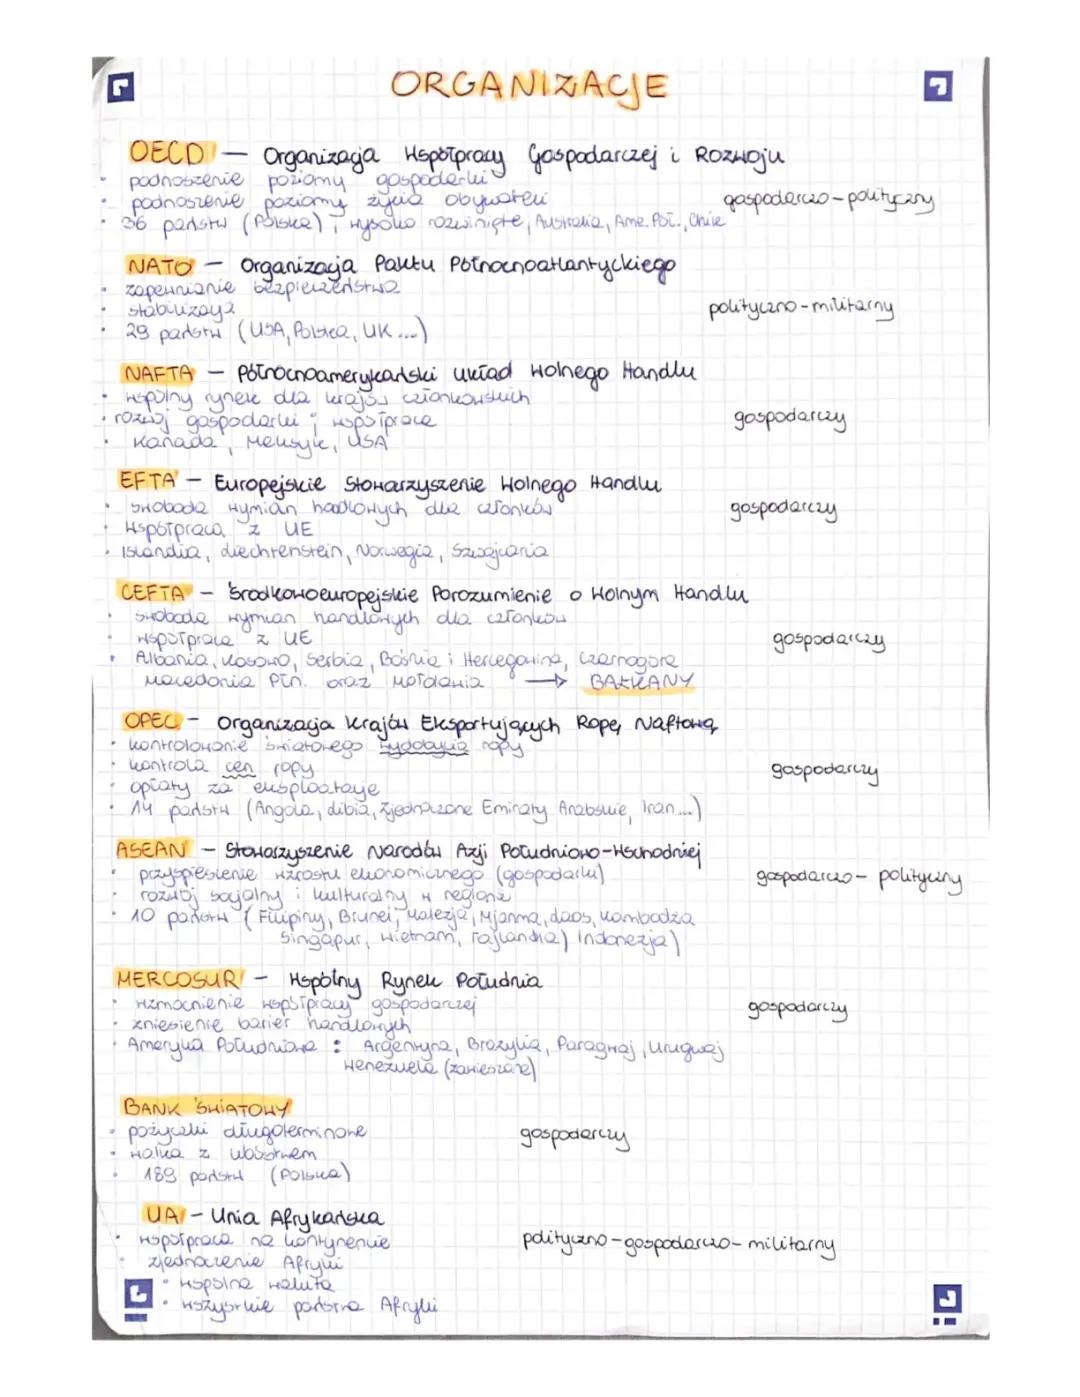 ORGANIZACJE
OECD — Organizacja Współpracy Gospodarczej i Rozwoju
• podnoszenie poziomy gospodarki
• podnoszenie poziomy życia obywateli
gospodarczo-polityczny
• 36 państw (Polska), wysoko rozwinięte, Australia, Ame. Poł., Chile
NATO — Organizacja Paktu Północnoatlantyckiego
• zapewnianie bezpieczeństwa
• stabilizacja
polityczno-militarny
• 29 państw (USA, Polska, UK ...)
NAFTA — Północnoamerykański Układ Wolnego Handlu
• wspólny rynek dla krajów członkowskich
• rozwój gospodarki i współpraca
gospodarczy
• Kanada, Meksyk, USA
EFTA — Europejskie Stowarzyszenie Wolnego Handlu
• swoboda wymian handlowych dla członków
gospodarczy
• współpraca z UE
• Islandia, Liechtenstein, Norwegia, Szwajcaria
CEFTA — Środkowoeuropejskie Porozumienie o Wolnym Handlu
• swoboda wymian handlowych dla członków
• współpraca z UE
gospodarczy
• Albania, Kosowo, Serbia, Bośnia i Hercegowina, Czarnogóra
Macedonia Płn. oraz Mołdawia → BAŁKANY
OPEC — Organizacja Krajów Eksportujących Ropę Naftową
• kontrolowanie światowego wydobycia ropy
• kontrola cen ropy
gospodarczy
• opłaty za eksploatację
• 14 państw (Angola, Libia, Zjednoczone Emiraty Arabskie, Iran...)
ASEAN — Stowarzyszenie Narodów Azji Południowo-Wschodniej
• przyspieszenie wzrostu ekonomicznego (gospodarki)
gospodarczo-polityczny
• rozwój socjalny i kulturalny w regionie
• 10 państw (Filipiny, Brunei, Malezja, Mjanma, Laos, Kambodża
Singapur, Wietnam, Tajlandia) Indonezja)
MERCOSUR — Wspólny Rynek Południa
• wzmocnienie współpracy gospodarczej
gospodarczy
• zniesienie barier handlowych
• Ameryka Południowa : Argentyna, Brazylia, Paragwaj, Urugwaj
Wenezuela (zawieszone)
BANK ŚWIATOWY
• pożyczki długoterminowe
gospodarczy
• walka z ubóstwem
• 189 państw (Polska)
UA — Unia Afrykańska
• współpraca na kontynencie
polityczno-gospodarczo-militarny
• zjednoczenie Afryki
• wspólna waluta
• wszystkie państwa Afryki